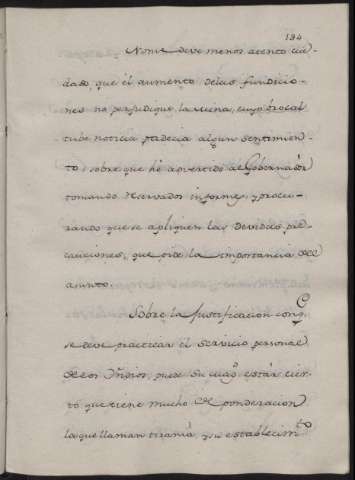 194
No me deve menos atento cui-
dado, que el aumento delas fundicio-
nes no perjudique la mina, cuyo brocal
tube noticia padecia algun sentimien-
to; sobre que he advertido al Gobernador
tomando reservados informes, y procu-
rando que se apliquen las devidas pre-
cauciones, que pide la importancia del
asunto.
Sobre la Justificacion con q
se deve practicar el servicio personal
de los Yndios, puse su
to que tiene mucho de ponderacion
la que llaman tirania, y su establecim.to